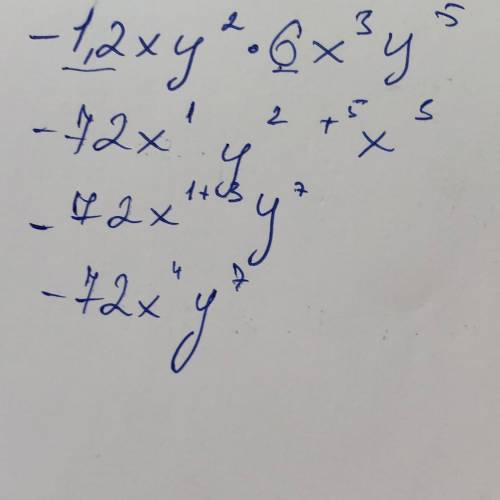 -1,2xy²·6x³y⁵
-72x¹y²⁺⁵x⁵
-72x¹⁺³y⁷
-72x⁴y⁷